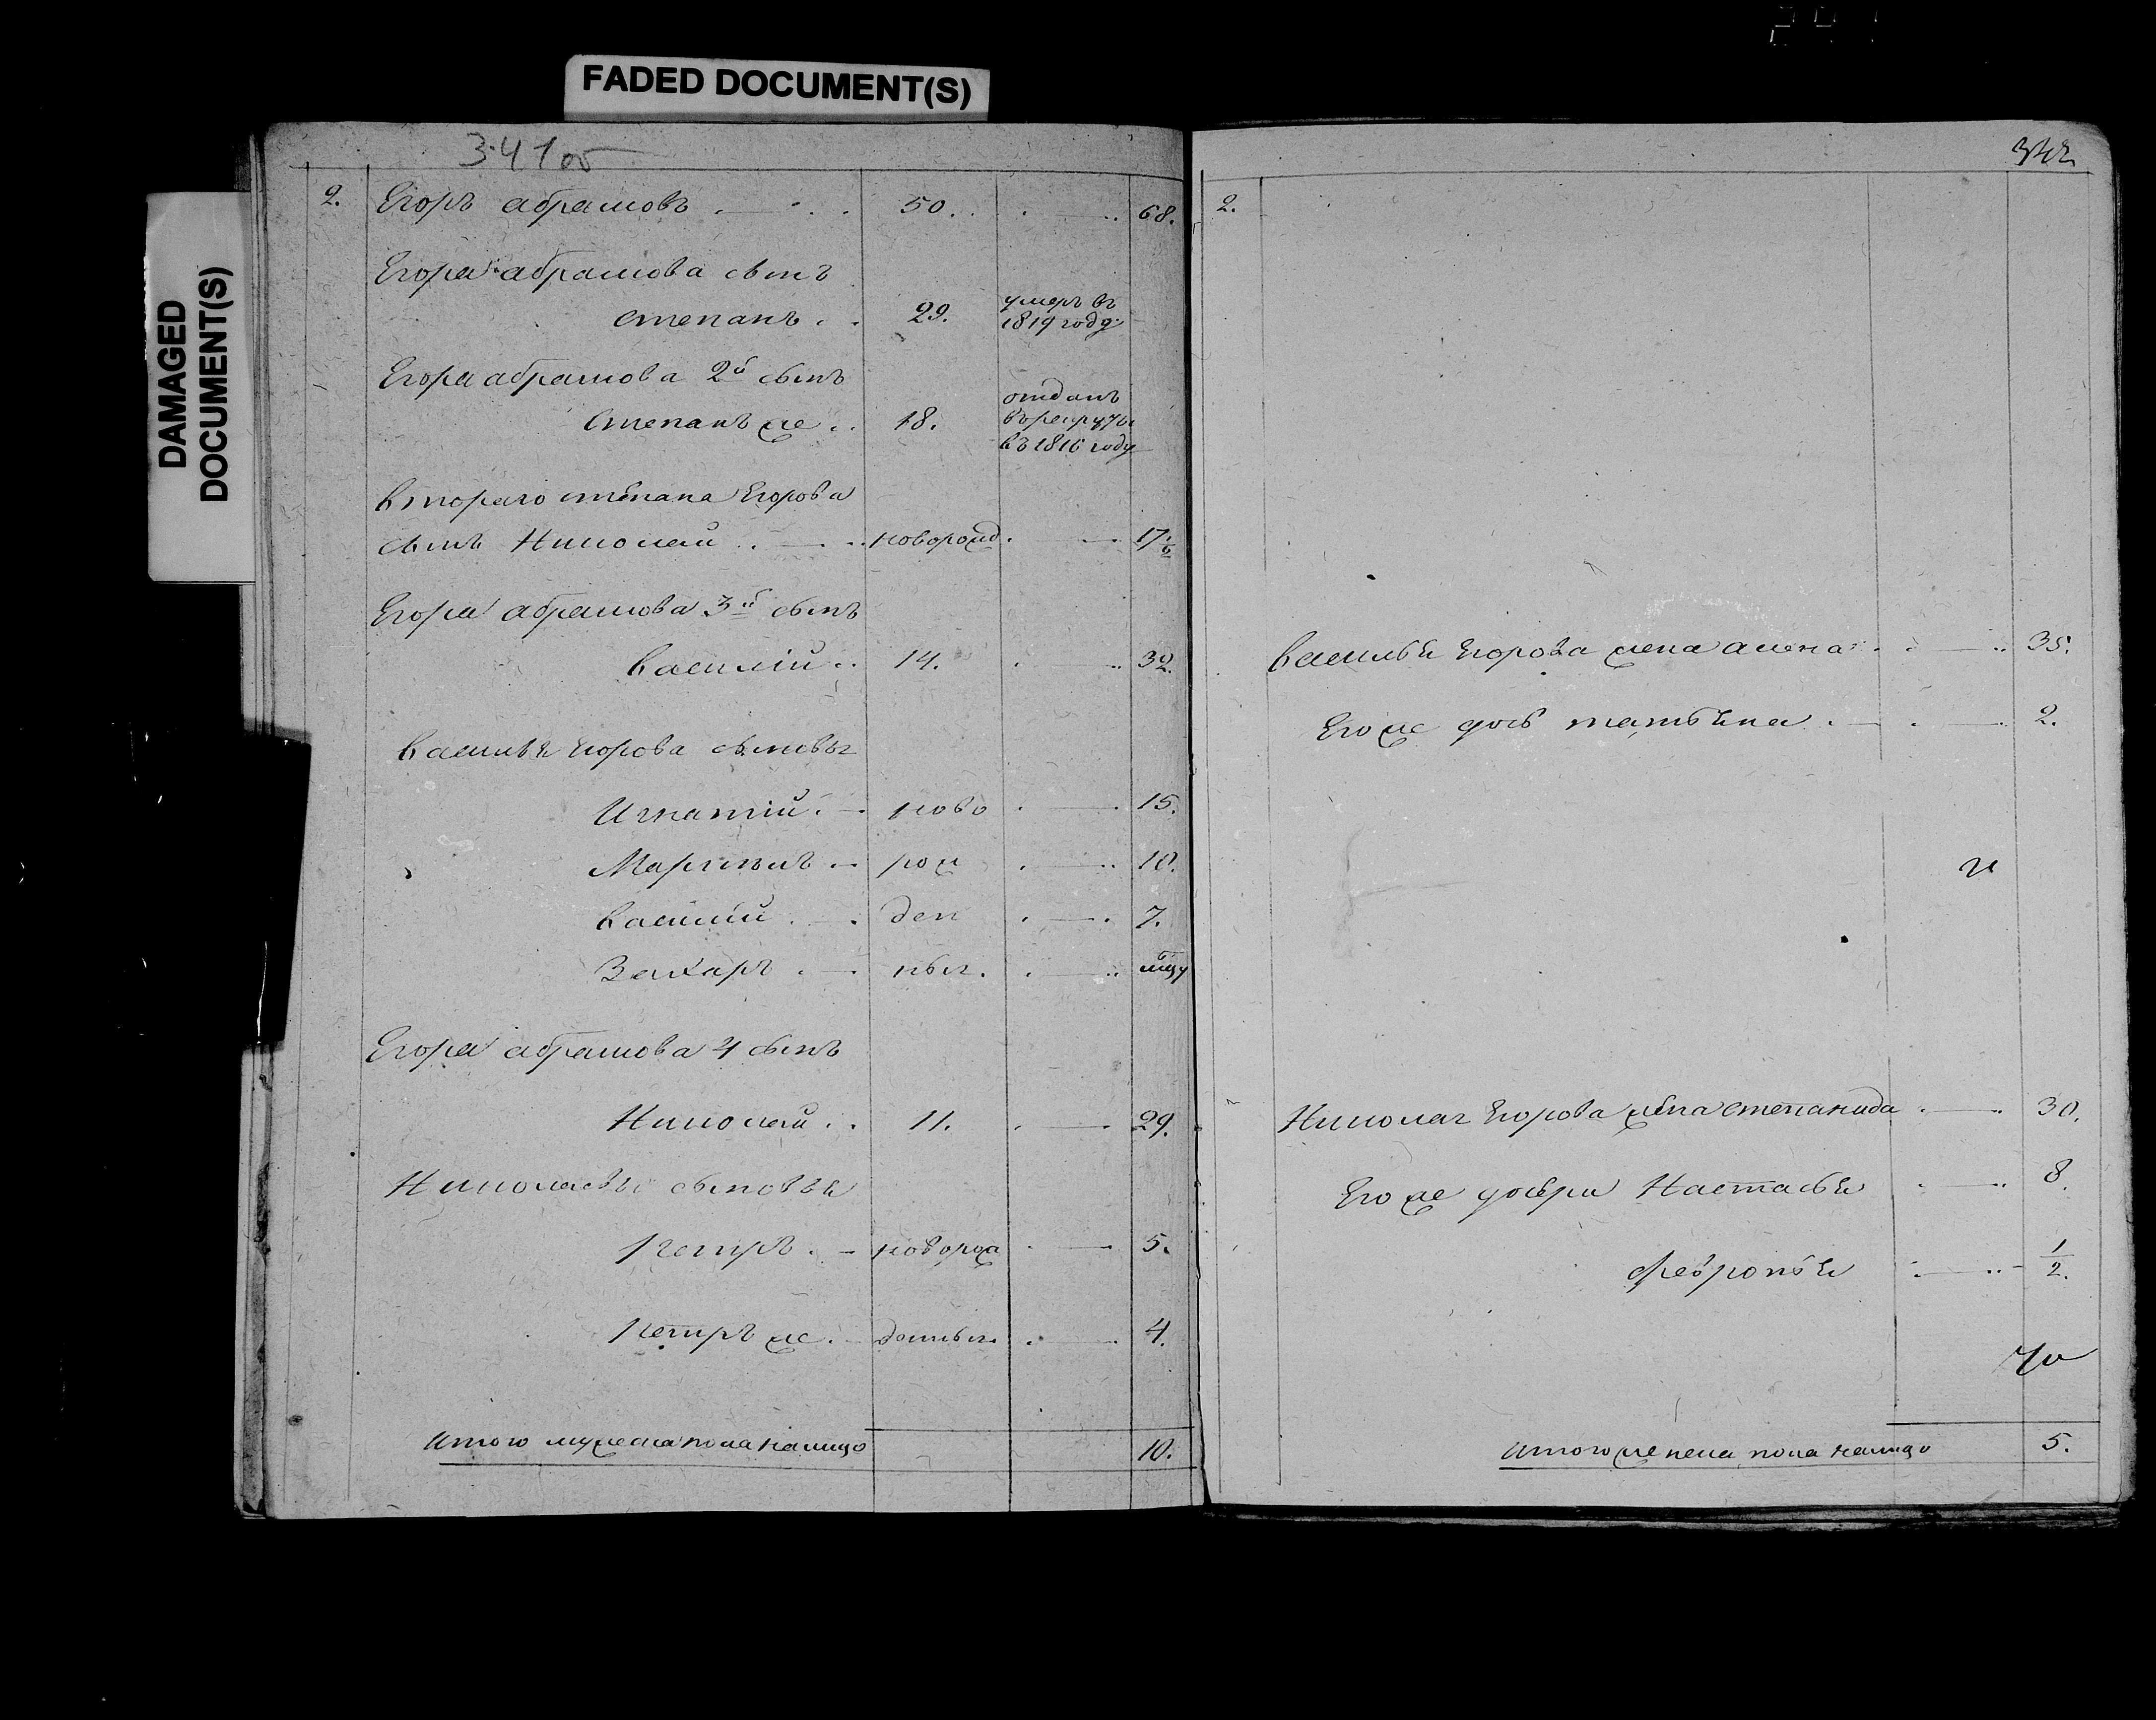 FADED DOCUMENT(S)
DAMAGED
DOCUMENT(S)
341 об
2. Егоръ абрамовъ 50. 68.
Егора абрамова сынъ
степанъ 29. умеръ въ
1819 году
Егора абрамова 2й сынъ
степанъ же 18. отданъ
в рекруты
въ 1816 году
втораго степана Егорова
сынъ Николай новорожд. 17.
Егора абрамова 3й сынъ
василий 14. 32.
василья Егорова сыновья
Игнатий ново 15.
Мартынъ рож 10.
василий ден 7.
Захаръ ныя.
Егора абрамова 4 сынъ
Николай 11. 29.
Николаевы сыновья
Петръ новорож 5.
Петръ же денныя 4.
итого мужеска пола налицо 10.
342
2.
василья Егорова жена алена 35.
Его же дочь татьяна 2.
Николая Егорова жена степанида 30.
Его же дочери Настасья 8.
февронья 1/2.
итого женска пола налицо 5.